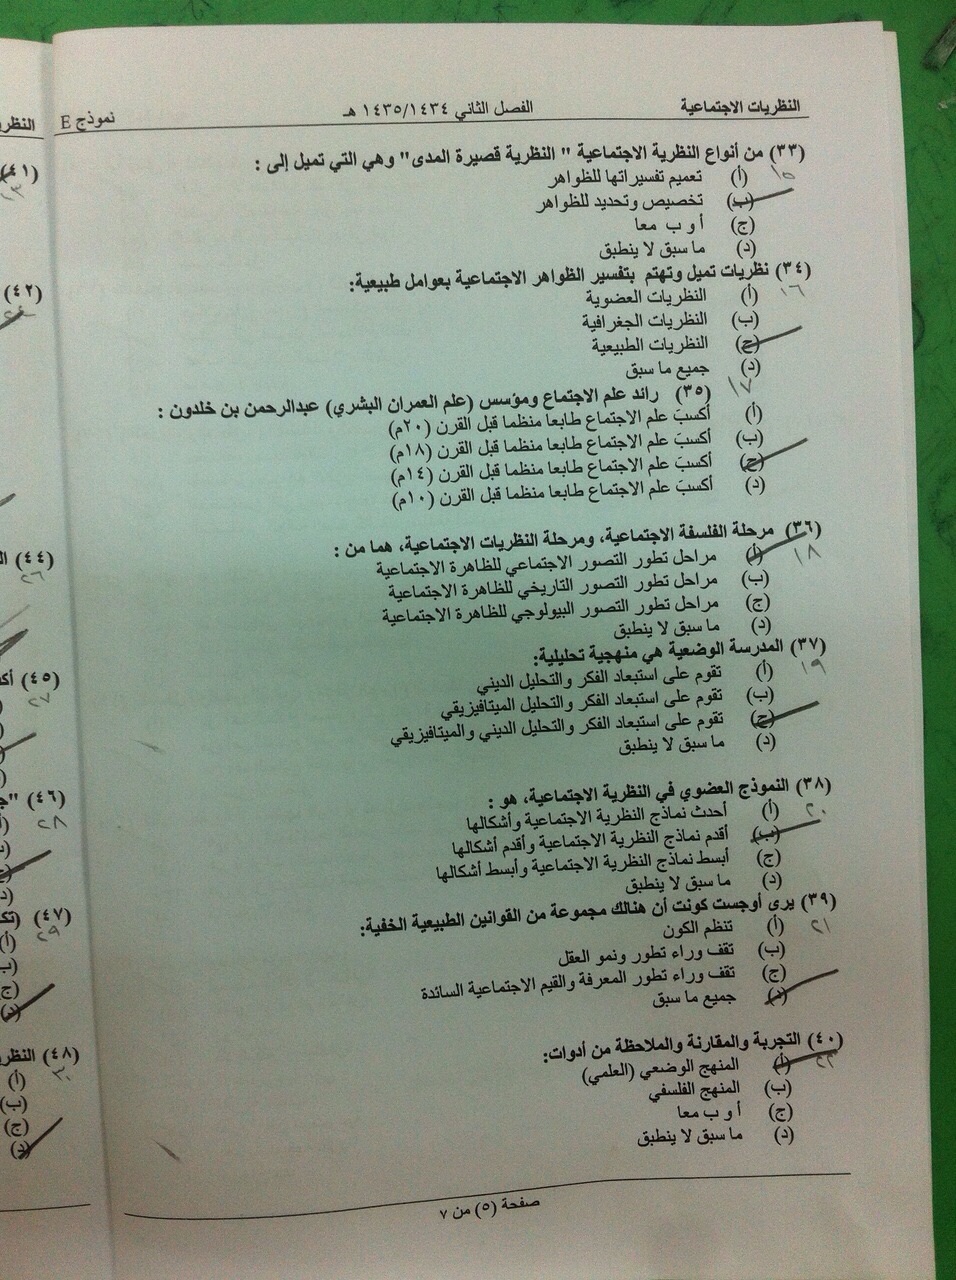 النظريات الاجتماعية الفصل الثاني ١٤٣٥/١٤٣٤ هـ نموذج E
(٣٣) من أنواع النظرية الاجتماعية " النظرية قصيرة المدى" وهي التي تميل إلى :
١٥
(أ) تعميم تفسيراتها للظواهر
(ب) تخصيص وتحديد للظواهر
(ج) أ و ب معا
(د) ما سبق لا ينطبق
(٣٤) نظريات تميل وتهتم بتفسير الظواهر الاجتماعية بعوامل طبيعية:
١٦
(أ) النظريات العضوية
(ب) النظريات الجغرافية
(ج) النظريات الطبيعية
(د) جميع ما سبق
١٧
(٣٥) رائد علم الاجتماع ومؤسس (علم العمران البشري) عبدالرحمن بن خلدون :
(أ) أكسبَ علم الاجتماع طابعا منظما قبل القرن (٢٠م)
(ب) أكسبَ علم الاجتماع طابعا منظما قبل القرن (١٨م)
(ج) أكسبَ علم الاجتماع طابعا منظما قبل القرن (١٤م)
(د) أكسبَ علم الاجتماع طابعا منظما قبل القرن (١٠م)
(٣٦) مرحلة الفلسفة الاجتماعية، ومرحلة النظريات الاجتماعية، هما من :
١٨
(أ) مراحل تطور التصور الاجتماعي للظاهرة الاجتماعية
(ب) مراحل تطور التصور التاريخي للظاهرة الاجتماعية
(ج) مراحل تطور التصور البيولوجي للظاهرة الاجتماعية
(د) ما سبق لا ينطبق
(٣٧) المدرسة الوضعية هي منهجية تحليلية:
١٩
(أ) تقوم على استبعاد الفكر والتحليل الديني
(ب) تقوم على استبعاد الفكر والتحليل الميتافيزيقي
(ج) تقوم على استبعاد الفكر والتحليل الديني والميتافيزيقي
(د) ما سبق لا ينطبق
(٣٨) النموذج العضوي في النظرية الاجتماعية، هو :
٢٠
(أ) أحدث نماذج النظرية الاجتماعية وأشكالها
(ب) أقدم نماذج النظرية الاجتماعية وأقدم أشكالها
(ج) أبسط نماذج النظرية الاجتماعية وأبسط أشكالها
(د) ما سبق لا ينطبق
(٣٩) يرى أوجست كونت أن هنالك مجموعة من القوانين الطبيعية الخفية:
٢١
(أ) تنظم الكون
(ب) تقف وراء تطور ونمو العقل
(ج) تقف وراء تطور المعرفة والقيم الاجتماعية السائدة
(د) جميع ما سبق
(٤٠) التجربة والمقارنة والملاحظة من أدوات:
٢٢
(أ) المنهج الوضعي (العلمي)
(ب) المنهج الفلسفي
(ج) أ و ب معا
(د) ما سبق لا ينطبق
صفحة (٥) من ٧
(٤١)
٢٣
(٤٢)
(٤٤)
٢٦
(٤٥)
٢٧
(٤٦)
٢٨
(٤٧)
٢٩
(أ)
(ب)
(ج)
(د)
(٤٨) النظر
٣٠
(أ)
(ب)
(ج)
(د)